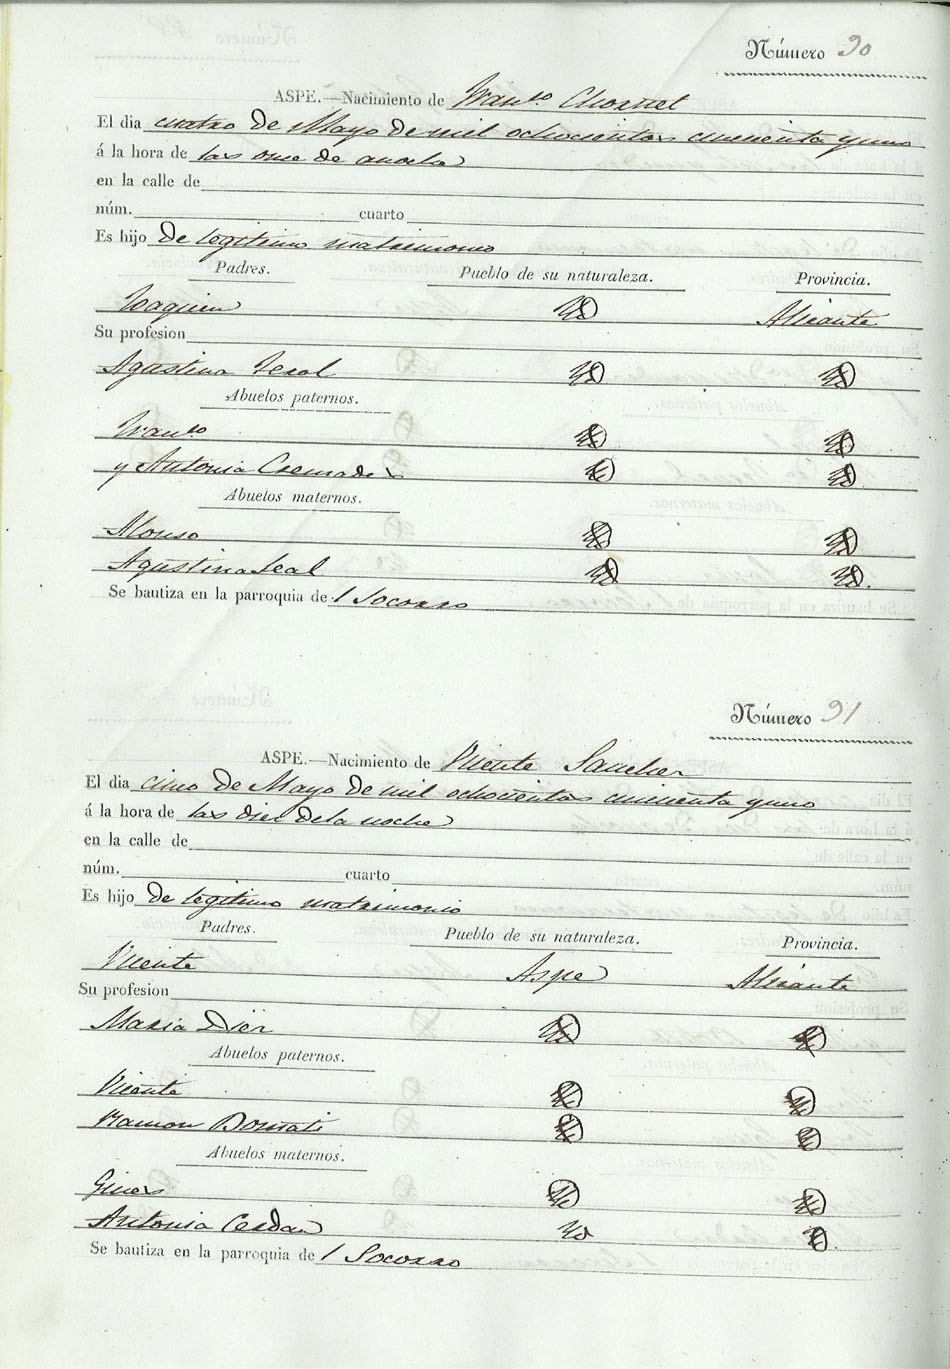 Número 90
ASPE.—Nacimiento de Franco.
El dia cuatro de Mayo de mil ochocientos cincuenta y uno
á la hora de las once de anoche
en la calle de
núm. cuarto
Es hijo de legitimo matrimonio
Padres. Pueblo de su naturaleza. Provincia.
Joaquin Alicante
Su profesion
Agustina
Abuelos paternos.
Franco.
y Antonia
Abuelos maternos.
Alonso
Agustina Leal
Se bautiza en la parroquia del Socorro
Número 91
ASPE.—Nacimiento de Vicente Sanchez
El dia cinco de Mayo de mil ochocientos cincuenta y uno
á la hora de las diez de la noche
en la calle de
núm. cuarto
Es hijo de legitimo matrimonio
Padres. Pueblo de su naturaleza. Provincia.
Vicente Aspe Alicante
Su profesion
Maria Diez
Abuelos paternos.
Vicente
Ramon
Abuelos maternos.
Gines
Antonia Cerdan
Se bautiza en la parroquia del Socorro